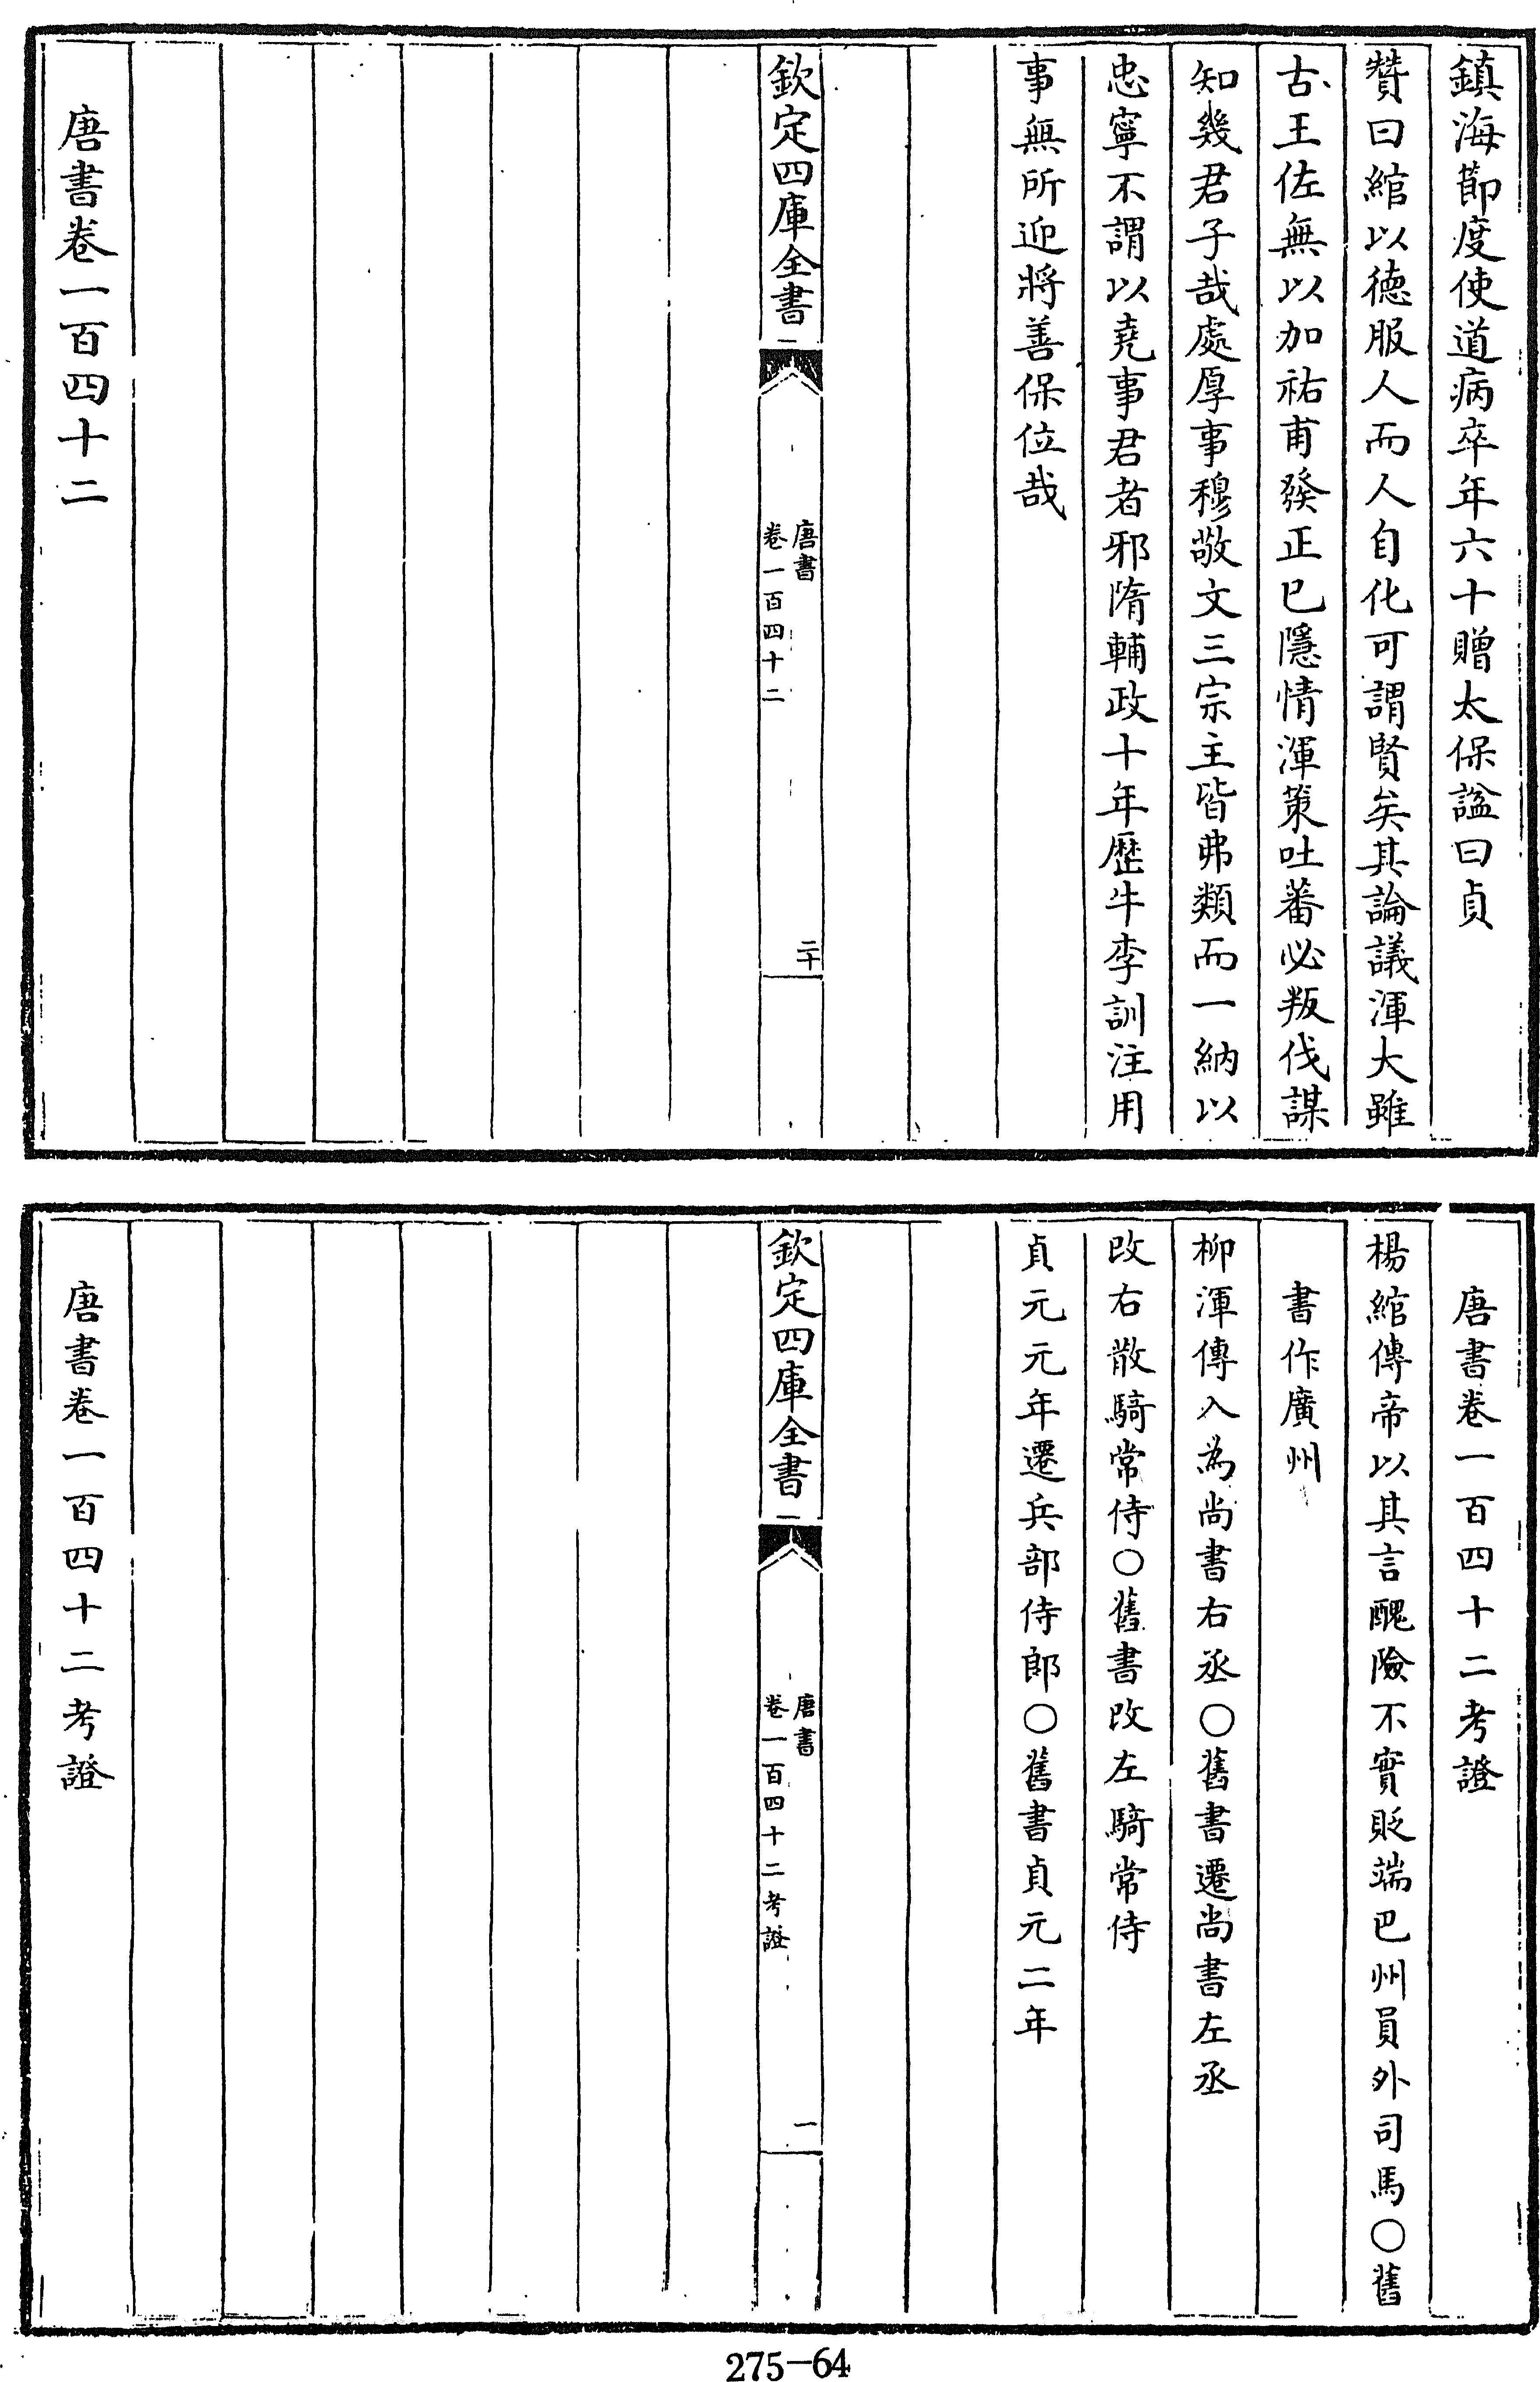 鎮海節度使道病卒年六十贈太保諡曰貞
贊曰綰以德服人而人自化可謂賢矣其論議渾大雖
古王佐無以加祐甫發正己隱情渾策吐蕃必叛伐謀
知幾君子哉處厚事穆敬文三宗主皆弗類而一納以
忠寧不謂以堯事君者邪隋輔政十年歷牛李訓注用
事無所迎將善保位哉
欽定四庫全書
唐書
卷一百四十二
二十
唐書卷一百四十二
唐書卷一百四十二考證
楊綰傳帝以其言醜險不實貶端巴州員外司馬○舊
書作廣州
柳渾傳入為尚書右丞○舊書遷尚書左丞
改右散騎常侍○舊書改左騎常侍
貞元元年遷兵部侍郎○舊書貞元二年
欽定四庫全書
唐書
卷一百四十二考證
一
唐書卷一百四十二考證
275-64